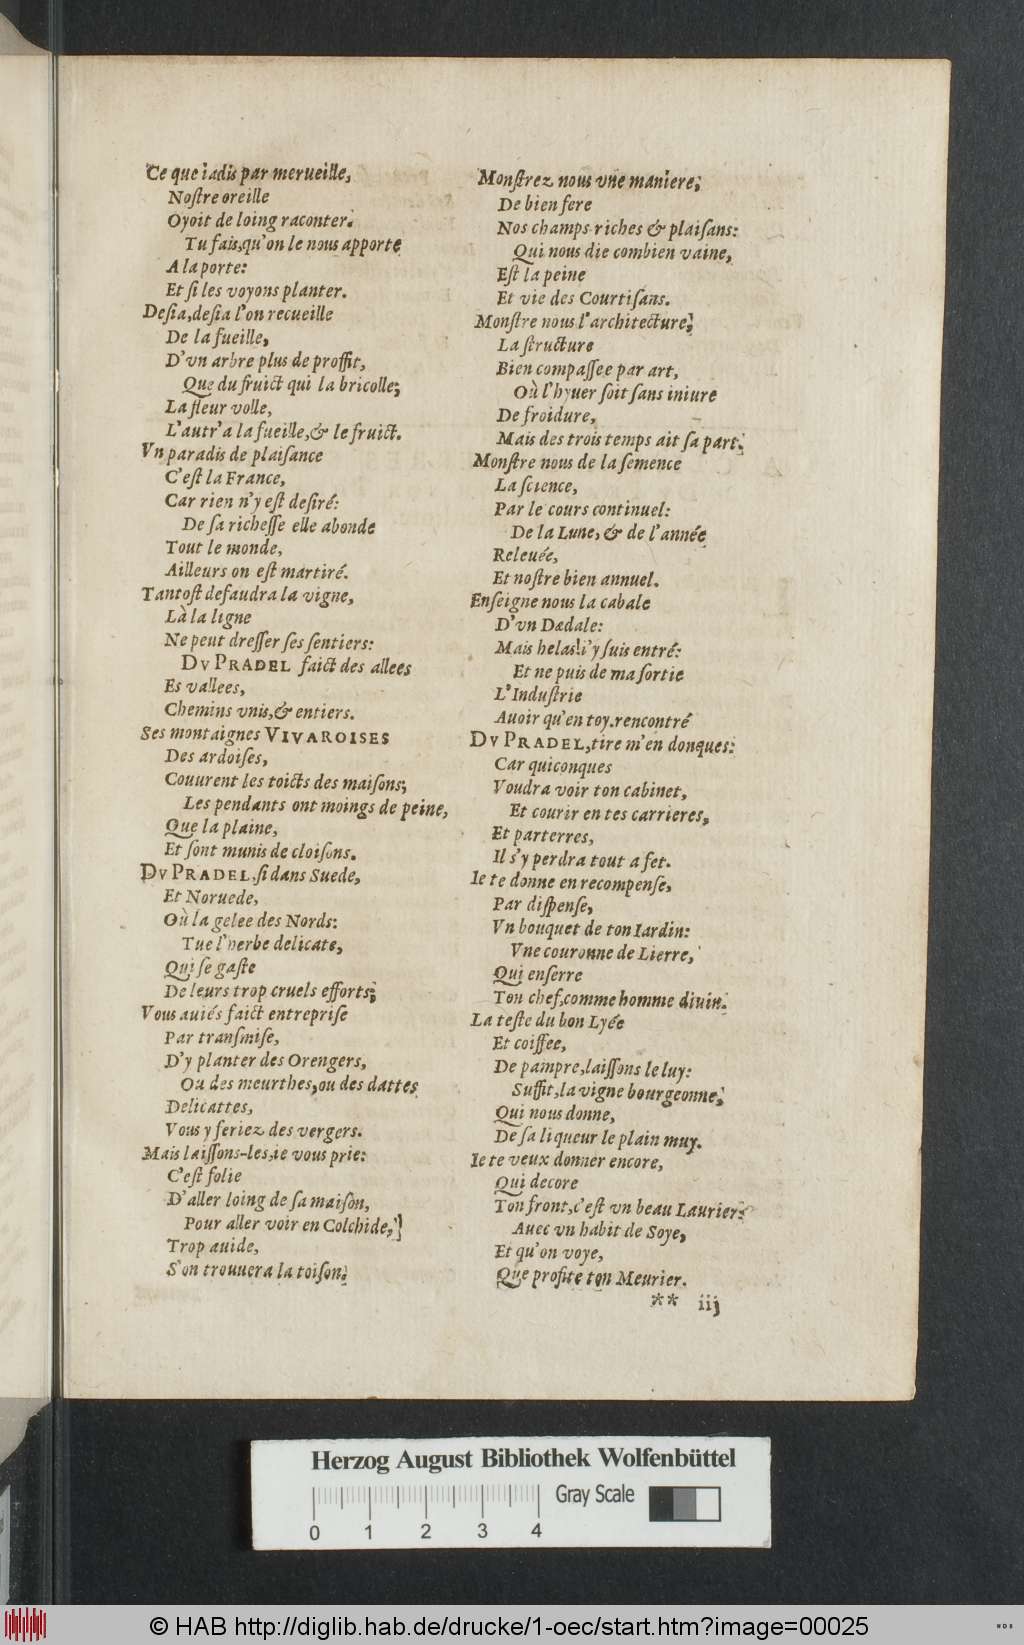 Ce que iadis par merueille,
Noſtre oreille
Oyoit de loing raconter.
Tu fais,qu'on le nous apporte
A la porte:
Et ſi les voyons planter.
Deſia,deſia l'on recueille
De la fueille,
D'vn arbre plus de proffit,
Que du fruict qui la bricolle;
La fleur volle,
L'autr'a la fueille,& le fruict.
Vn paradis de plaiſance
C'eſt la France,
Car rien n'y eſt deſiré:
De ſa richeſſe elle abonde
Tout le monde,
Ailleurs on eſt martiré.
Tantoſt defaudra la vigne,
Là la ligne
Ne peut dreſſer ſes ſentiers:
DV PRADEL faict des allees
Es vallees,
Chemins vnis,& entiers.
Ses montaignes VIVAROISES
Des ardoiſes,
Couurent les toicts des maiſons;
Les pendants ont moings de peine,
Que la plaine,
Et ſont munis de cloiſons.
DV PRADEL,ſi dans Suede,
Et Noruede,
Où la gelee des Nords:
Tue l'herbe delicate,
Qui ſe gaſte
De leurs trop cruels efforts;
Vous auiés faict entrepriſe
Par tranſmiſe,
D'y planter des Orengers,
Ou des meurthes,ou des dattes
Delicattes,
Vous y feriez des vergers.
Mais laiſſons-les,ie vous prie:
C'eſt folie
D'aller loing de ſa maiſon,
Pour aller voir en Colchide,
Trop auide,
S'on trouuera la toiſon.
Monſtrez nous vne maniere;
De bien fere
Nos champs riches & plaiſans:
Qui nous die combien vaine,
Eſt la peine
Et vie des Courtiſans.
Monſtre nous l'architecture;
La ſtructure
Bien compaſſee par art,
Où l'hyuer ſoit ſans iniure
De froidure,
Mais des trois temps ait ſa part.
Monſtre nous de la ſemence
La ſcience,
Par le cours continuel:
De la Lune, & de l'année
Releuée,
Et noſtre bien annuel.
Enſeigne nous la cabale
D'vn Dædale:
Mais helas!i'y ſuis entré:
Et ne puis de ma ſortie
L'Induſtrie
Auoir qu'en toy.rencontré
DV PRADEL,tire m'en donques:
Car quiconques
Voudra voir ton cabinet,
Et courir en tes carrieres,
Et parterres,
Il s'y perdra tout a fet.
Ie te donne en recompenſe,
Par diſpenſe,
Vn bouquet de ton Iardin:
Vne couronne de Lierre,
Qui enſerre
Ton chef,comme homme diuin.
La teſte du bon Lyée
Et coiffee,
De pampre,laiſſons le luy:
Suffit,la vigne bourgeonne;
Qui nous donne,
De ſa liqueur le plain muy.
Ie te veux donner encore,
Qui decore
Ton front,c'eſt vn beau Laurier:
Auec vn habit de Soye,
Et qu'on voye,
Que profite ton Meurier.
** iij
Herzog August Bibliothek Wolfenbüttel
Gray Scale
0 1 2 3 4
© HAB http://diglib.hab.de/drucke/1-oec/start.htm?image=00025